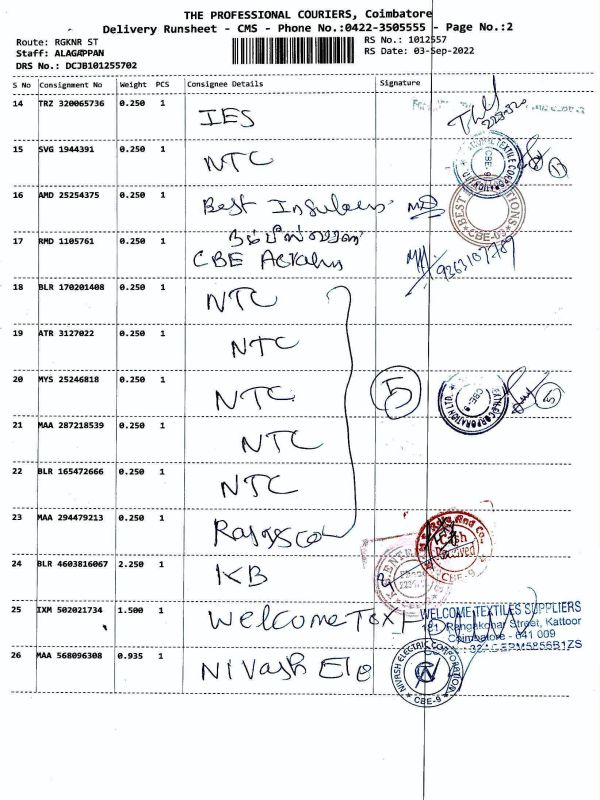 THE PROFESSIONAL COURIERS, Coimbatore
Delivery Runsheet - CMS - Phone No.:0422-3505555 - Page No.:2
Route: RGKNR ST
Staff: ALAGAPPAN
DRS No.: DCJB101255702
RS No.: 1012557
RS Date: 03-Sep-2022
S No Consignment No Weight PCS Consignee Details Signature
14 TRZ 320065736 0.250 1 IES
15 SVG 1944391 0.250 1 NTC
16 AMD 25254375 0.250 1 Best Insulaers
BEST CBE-03
17 RMD 1105761 0.250 1
CBE 9363107789
18 BLR 170201408 0.250 1 NTC
19 ATR 3127022 0.250 1 NTC
20 MYS 25246818 0.250 1 NTC 5
CBE-9 5
21 MAA 287218539 0.250 1 NTC
22 BLR 165472666 0.250 1 NTC
23 MAA 294479213 0.250 1
CBE-9
24 BLR 4603816067 2.250 1 KB
25 IXM 502021734 1.500 1 Welcome Text
WELCOME TEXTILES SUPPLIERS
Rangakonar Street, Kattoor
Coimbatore - 641 009
26 MAA 568096308 0.935 1 NIVash Ele
NIVASH ELECTRIC CORPORATION
CBE-9